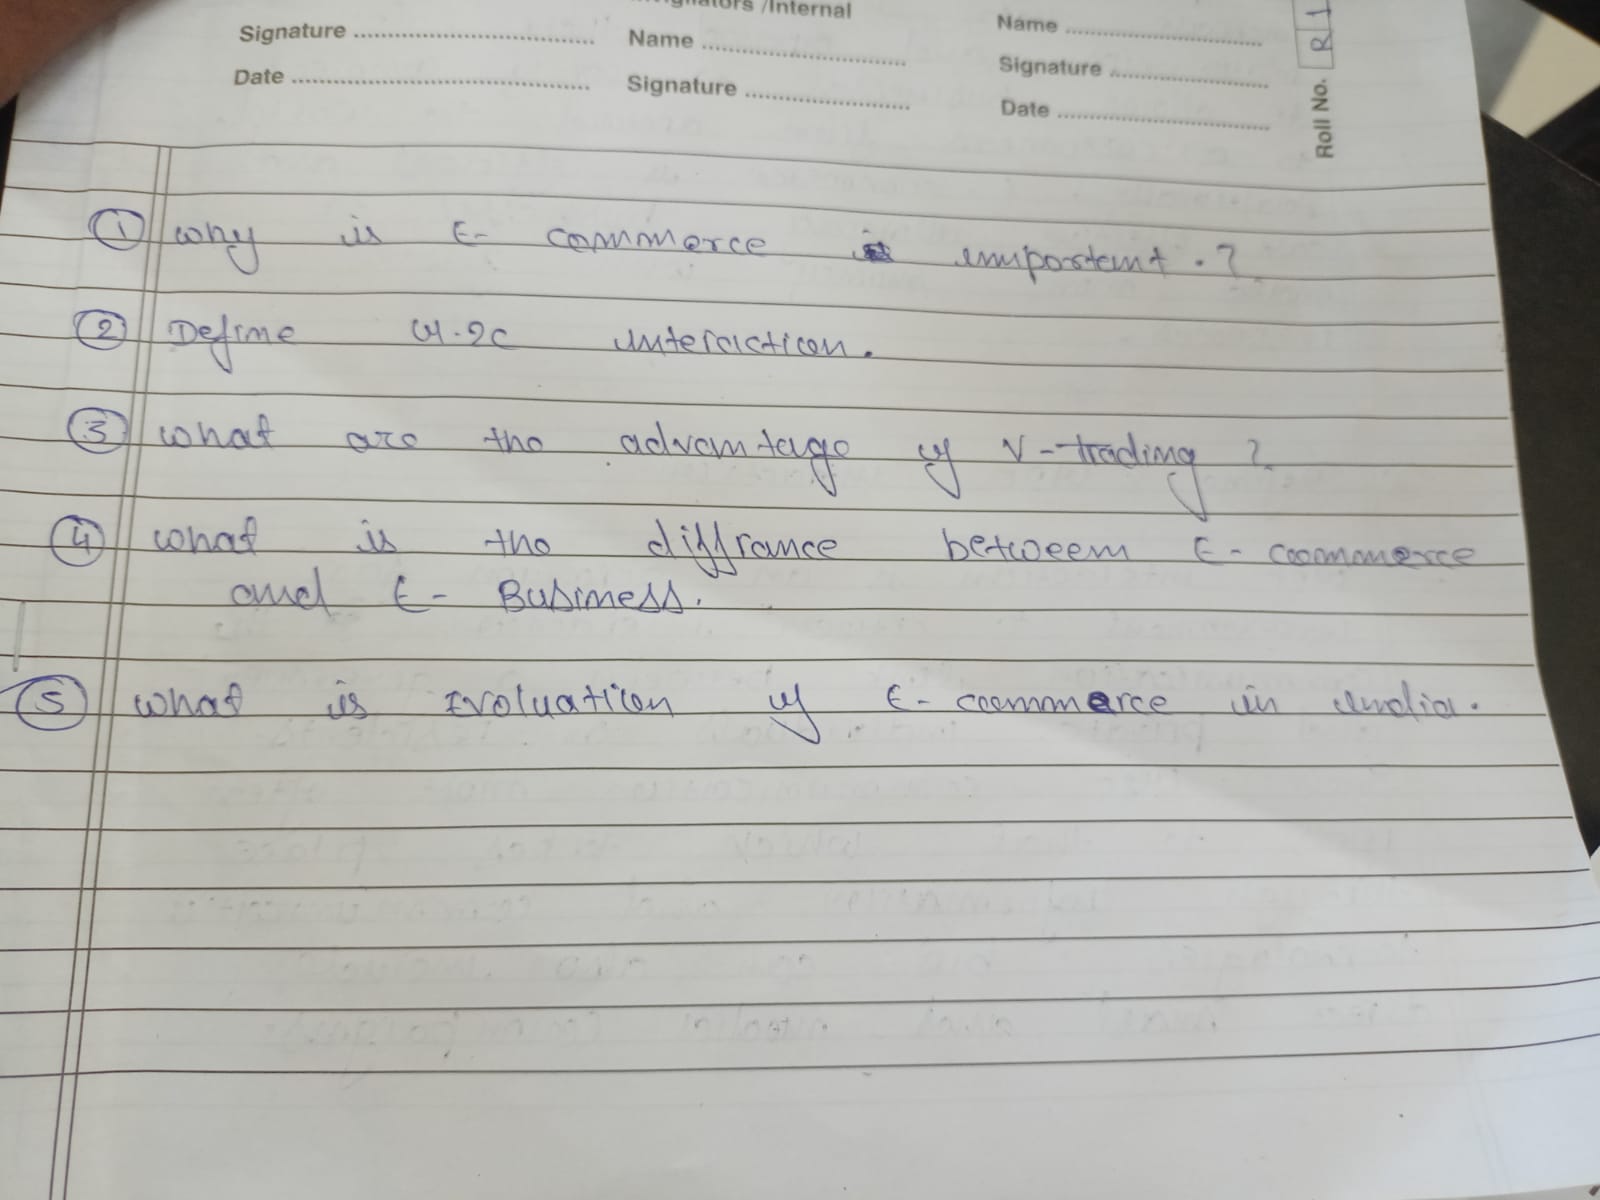 /Internal
Signature ........................ Name ........................ Name ........................
Date ........................ Signature ........................ Signature ........................
Date ........................
Roll No. R 1
① why is E- commerce important . ?
② Define G.2C interaction .
③ what are the advantage of V-trading ?
④ what is the diffrance between E- coommerce
and E- Business .
⑤ what is Evoluation of E- coommerce in india .